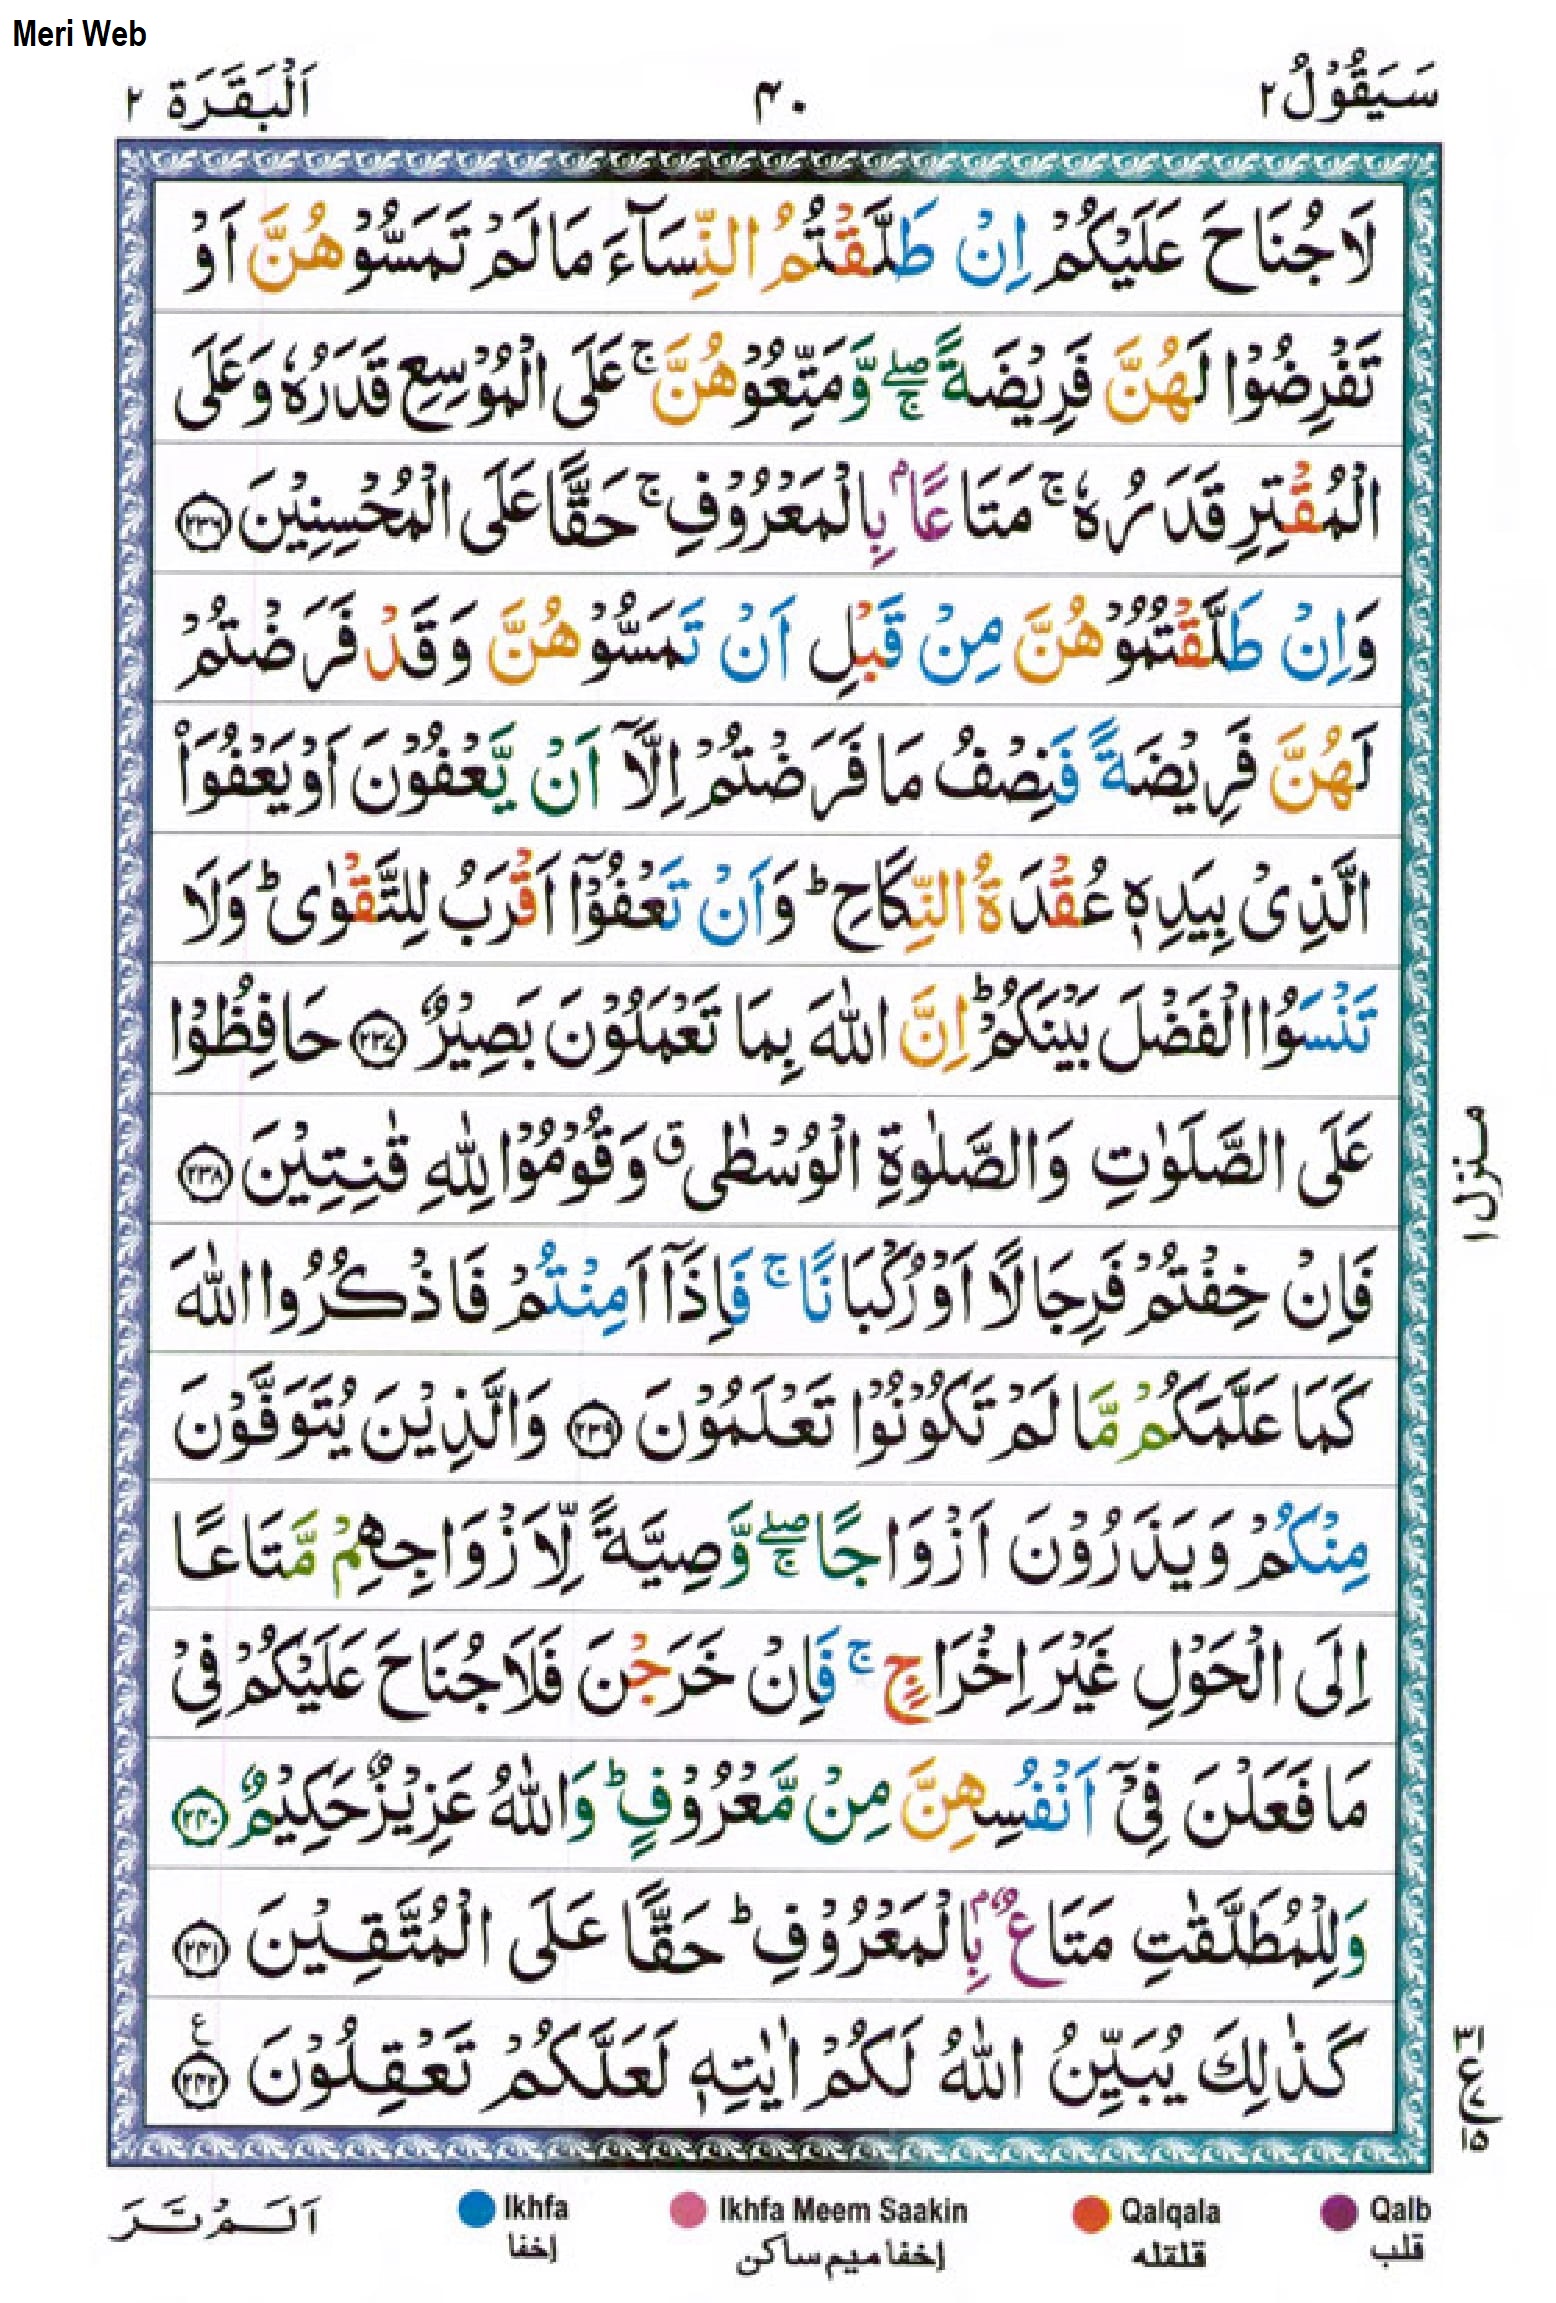 Meri Web
سَيَقُوْلُ ٢
٤٠
اَلْبَقَرَة ٢
لَا جُنَاحَ عَلَيْكُمْ اِنْ طَلَّقْتُمُ النِّسَآءَ مَا لَمْ تَمَسُّوْهُنَّ اَوْ
تَفْرِضُوْا لَهُنَّ فَرِيْضَةً ۖۚ وَّمَتِّعُوْهُنَّ ۚ عَلَى الْمُوْسِعِ قَدَرُهٗ وَعَلَى
الْمُقْتِرِ قَدَرُهٗ ۚ مَتَاعًاۢ بِالْمَعْرُوْفِ ۚ حَقًّا عَلَى الْمُحْسِنِيْنَ ﴿٢٣٦﴾
وَاِنْ طَلَّقْتُمُوْهُنَّ مِنْ قَبْلِ اَنْ تَمَسُّوْهُنَّ وَقَدْ فَرَضْتُمْ
لَهُنَّ فَرِيْضَةً فَنِصْفُ مَا فَرَضْتُمْ اِلَّآ اَنْ يَّعْفُوْنَ اَوْ يَعْفُوَا۟
الَّذِىْ بِيَدِهٖ عُقْدَةُ النِّكَاحِ ؕ وَاَنْ تَعْفُوْٓا اَقْرَبُ لِلتَّقْوٰى ؕ وَلَا
تَنْسَوُا الْفَضْلَ بَيْنَكُمْ ؕ اِنَّ اللّٰهَ بِمَا تَعْمَلُوْنَ بَصِيْرٌ ﴿٢٣٧﴾ حَافِظُوْا
عَلَى الصَّلَوٰتِ وَالصَّلٰوةِ الْوُسْطٰى ق وَقُوْمُوْا لِلّٰهِ قٰنِتِيْنَ ﴿٢٣٨﴾
فَاِنْ خِفْتُمْ فَرِجَالًا اَوْ رُكْبَانًا ۚ فَاِذَآ اَمِنْتُمْ فَاذْكُرُوا اللّٰهَ
كَمَا عَلَّمَكُمْ مَّا لَمْ تَكُوْنُوْا تَعْلَمُوْنَ ﴿٢٣٩﴾ وَالَّذِيْنَ يُتَوَفَّوْنَ
مِنْكُمْ وَيَذَرُوْنَ اَزْوَاجًا ۖۚ وَّصِيَّةً لِّاَزْوَاجِهِمْ مَّتَاعًا
اِلَى الْحَوْلِ غَيْرَ اِخْرَاجٍ ۚ فَاِنْ خَرَجْنَ فَلَا جُنَاحَ عَلَيْكُمْ فِىْ
مَا فَعَلْنَ فِىْٓ اَنْفُسِهِنَّ مِنْ مَّعْرُوْفٍ ؕ وَاللّٰهُ عَزِيْزٌ حَكِيْمٌ ﴿٢٤٠﴾
وَلِلْمُطَلَّقٰتِ مَتَاعٌۢ بِالْمَعْرُوْفِ ؕ حَقًّا عَلَى الْمُتَّقِيْنَ ﴿٢٤١﴾
كَذٰلِكَ يُبَيِّنُ اللّٰهُ لَكُمْ اٰيٰتِهٖ لَعَلَّكُمْ تَعْقِلُوْنَ ﴿٢٤٢﴾ ع
منزل ١
٣١
ع
١٥
اَلَمْ تَرَ
Ikhfa
إخفا
Ikhfa Meem Saakin
إخفا ميم ساكن
Qalqala
قلقله
Qalb
قلب